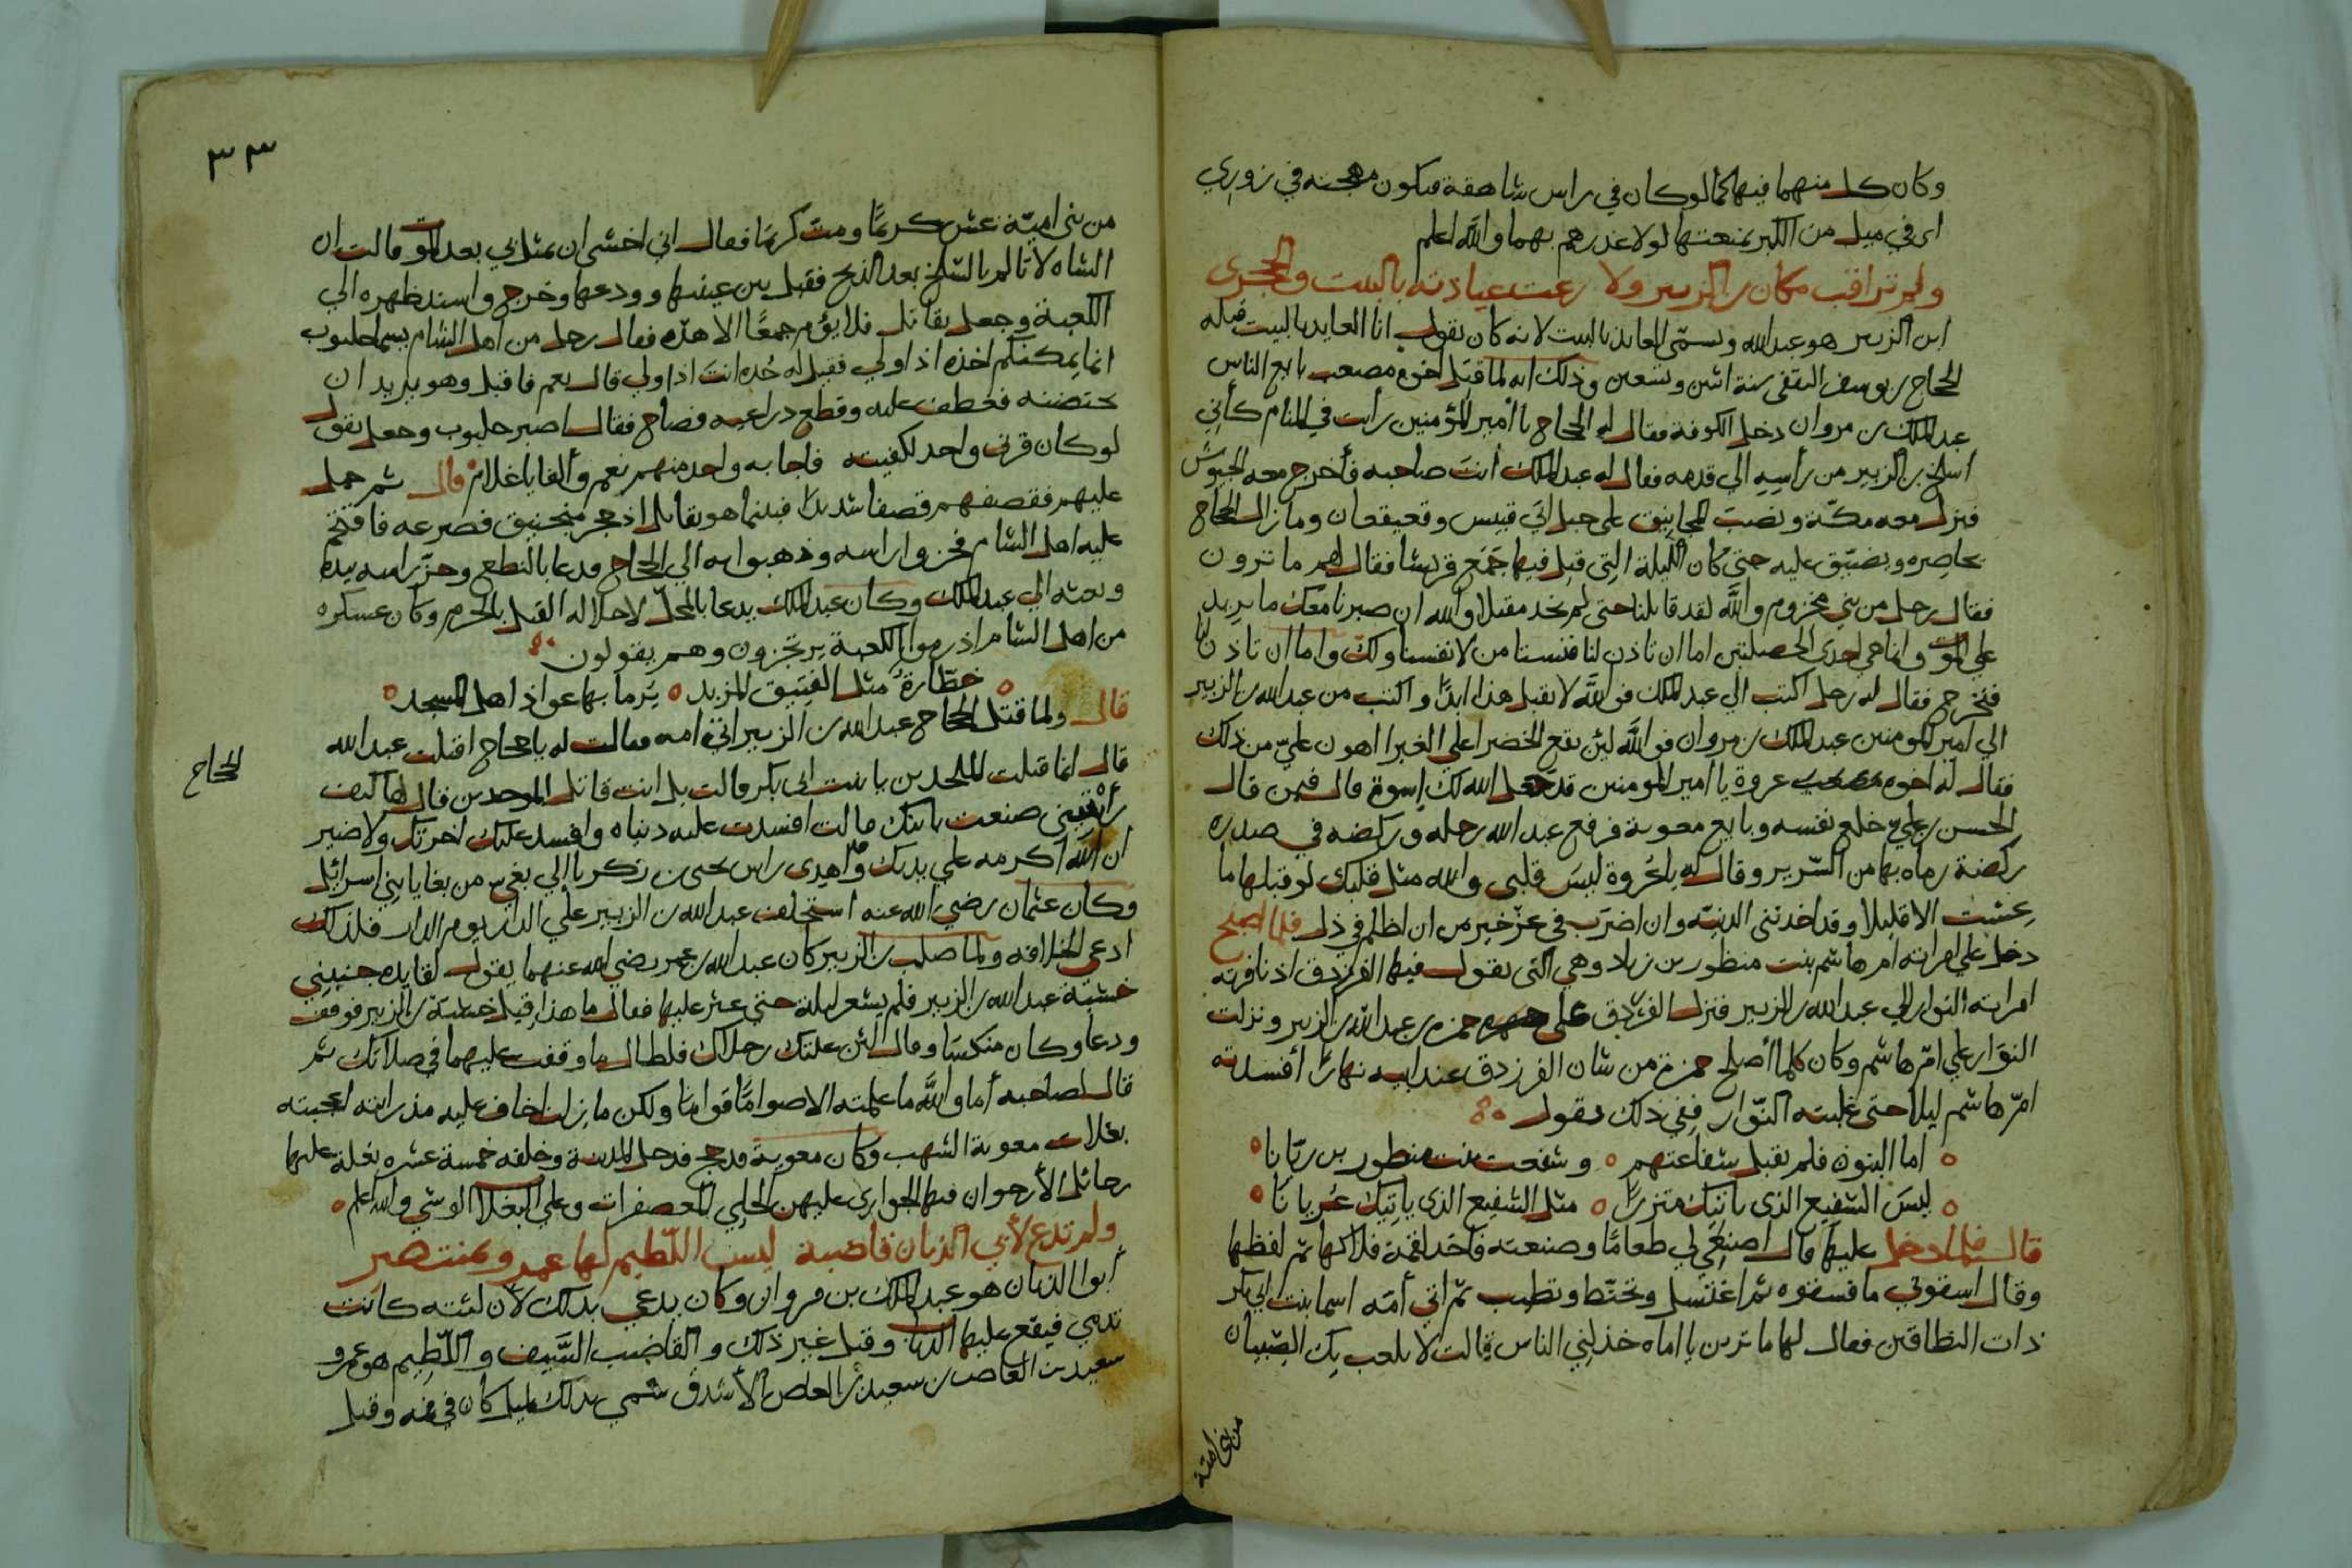 وكان كل منهما فيها كما لو كان في راس شاهقة فيكون مهجته في زوري
اي في ميل من الكبر تمنعتها لولا غدرهم بهما والله اعلم
ولم تراقب مكان بن الزبير ولا رعت عياذته بالبيت والحجر
ابن الزبير هو عبد الله ويسمّى العايذ بالبيت لانه كان يقول انا العايذ بالبيت قتله
الحجاج بن يوسف الثقفي سنة اثنين وتسعين وذلك انه لما قتل اخوه مصعب بايع الناس
عبد الملك بن مروان دخل الكوفة فقال له الحجاج يا أمير المؤمنين رأيت في المنام كأني
اسلخ بن الزبير من رأسه الي قدمه فقال له عبد الملك أنت صاحبه فأخرج معه الجيوش
فنزل معه مكّة ونصب المجانيق على جبل ابي قبيس وقعيقعان وما زال الحجاج
يحاصره ويضيّق عليه حتى كان الليلة التي قتل فيها جمع قريشا فقال لهم ما ترون
فقال رجل من بني مخزوم والله لقد قاتلنا حتى لم نجد مقتلا والله ان صبرنا معك ما نريد
علي الموت وانما هي احدى الخصلتين اما ان تاذن لنا فنستامن لانفسنا ولك واما ان تاذن لنا
فنخرج فقال له رجل اكتب الي عبد الملك فوالله لا نقبل هذا ابدًا واكتب من عبد الله بن الزبير
الي امير المومنين عبد الملك بن مروان فوالله لئن تقع الخضرا على الغبرا اهون عليّ من ذلك
فقال له اخوه عروة يا امير المومنين قد جعل الله لك اسوة قال فبمن قال
الحسن بن علي خلع نفسه وبايع معوية فرفع عبد الله رجله وركضه في صدره
ركضة رماه بها من السرير وقال له يا عُروة ليسَ قلبي والله مثل قلبك لو قبلها ما
عشت الا قليلا وقد اخذتني الدنيّه وان اضرب في عزّ خير من ان اظلم في ذل فلما اصبح
دخل علي امراته ام هاشم بنت منظور بن زياد وهي التي يقول فيها الفرزدق اذ نافرته
امراته النوار الي عبد الله بن الزبير فنزل الفرزدق على حمزه بن عبد الله بن الزبير ونزلت
النوار علي امّ هاشم وكان كلما أصلح حمزة من شان الفرزدق عند ابيه نهارًا أفسدته
امّ هاشم ليلا حتى غلبته النّوار ففي ذلك يقول
اما البنون فلم تقبل شفاعتهم وشفعت بنت منظور بن ربّانا
ليسَ الشفيع الذي ياتيك متزرًا مثل الشفيع الذي ياتيك عُريانا
قال فلما دخل عليها قال اصنعي لي طعامًا وصنعته فاخذ لقمة فلاكها ثم لفظها
وقال اسقوني ما فسقوه ثم اغتسل وتحنّط وتطيب ثم اتى أمّه اسما بنت ابي بكر
ذات النطاقين فقال لها ما ترين يا اماه خذلني الناس قالت لا يلعب بك الصبيان
من بني امية
٣٣
من بني اميّة عش كريمًا ومت كريمًا فقال اني اخشى ان يمثل بي بعد الموت قالت ان
الشاه لا تالم بالسّلخ بعد الذبح فقبل بين عينيها وودعها وخرج واسند ظهره الي
الكعبة وجعل يقاتل فلا يؤم جمعًا الا هدّه فقال رجل من اهل الشام يسما حلبوب
انما يمكنكم اخذه اذا ولي فقيل له خُده انتَ اذا ولي قال نعم فاقبل وهو يريد ان
يحتضنه فعطف عليه وقطع دراعيه فصاح فقال اصبر حلبوب وجعل يقول
لو كان قرني واحد لكفيته فاجابه واحد منهم نعم وألفا يا غلام قال ثم حمل
عليهم فقصفهم قصفا شديدًا فبينما هو يقاتل اذ حجر منجنيق فصرعه فاقتحم
عليه اهل الشام فحزوا راسه وذهبوا به الي الحجاج فدعا بالنطع وحزّ راسه بيده
وبعثه الي عبد الملك وكان عبد الملك يدعا بالمحلّ لاحلاله القتل بالحرم وكان عسكره
من اهل الشام اذ رموا الكعبة يرتجزون وهم يقولون
خطّارةٌ مثل الفنيق المزبد يَرما بها عواذ اهل المسجد
قال ولما قتل الحجاج عبد الله بن الزبير اتي امه فقالت له يا حجاج اقتلت عبد الله
قال انما قتلت الملحدين يا بنت ابي بكر قالت بل انت قاتل الموحدين قال لها كيف
رأيتيني صنعت بابنك قالت افسدت عليه دنياه وافسد عليك اخرتك ولا ضير
ان الله اكرمه علي يديك وأهدى راس يحيى بن زكريا الي بغي من بغايا بني اسرائل
وكان عثمان رضي الله عنه استخلف عبد الله بن الزبير علي الدار يوم الدار فلذلك
ادعى الخلافه ولما صلب بن الزبير كان عبد الله بن عمر رضي الله عنهما يقول لقايده جنبني
خشبة عبد الله بن الزبير فلم يشعر ليلة حتى عثر عليها فقال ما هذا قيل خشبة بن الزبير فوقف
ودعا وكان منكسًا وقال لئن علتك رجلاك فلطال ما وقفت عليهما في صلاتك ثم
قال لصاحبه أما والله ما علمته الا صوامًا قوامًا ولكن ما زلت اخاف عليه مذ رايته اعجبته
بغلات معوية الشهب وكان معوية قد حج فدخل المدينة وخلفه خمسة عشره بغلة عليها
رحائل الأرجوان فيها الجواري عليهن الحلي المعصفرات وعلي البغلا الوشي والله اعلم
ولم تدع لأبي الذبان قاضبة ليس اللّطيم لها عمرو بمنتصر
أبو الذبان هو عبد الملك بن مروان وكان يدعي بذلك لأن لثته كانت
تدمي فيقع عليها الذباب وقيل غير ذلك والقاضب السَّيف واللّطيم هو عمرو
سعيد بن العاص بن سعيد بن العاص الأشدق سُمي بذلك لميل كان في فمه وقيل
الحجاج